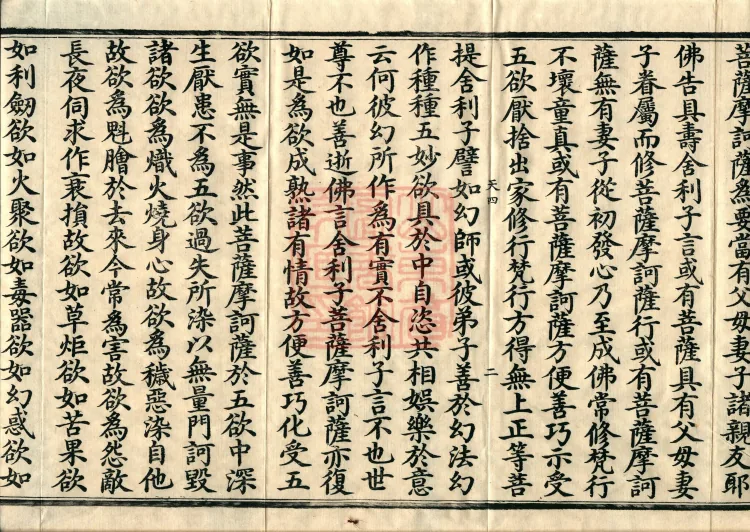 菩薩摩訶薩為要當有父母妻子諸親友耶
佛告具壽舍利子言或有菩薩具有父母妻
子眷屬而修菩薩摩訶薩行或有菩薩摩訶
薩無有妻子從初發心乃至成佛常修梵行
不壞童真或有菩薩摩訶薩方便善巧示受
五欲厭捨出家修行梵行方得無上正等菩
天四
二
提舍利子譬如幻師或彼弟子善於幻法幻
作種種五妙欲具於中自恣共相娛樂於意
云何彼幻所作為有實不舍利子言不也世
尊不也善逝佛言舍利子菩薩摩訶薩亦復
如是為欲成熟諸有情故方便善巧化受五
欲實無是事然此菩薩摩訶薩於五欲中深
生厭患不為五欲過失所染以無量門訶毀
諸欲欲為熾火燒身心故欲為穢惡染自他
故欲為魁膾於去來今常為害故欲為怨敵
長夜伺求作衰損故欲如草炬欲如苦果欲
如利劒欲如火聚欲如毒器欲如幻惑欲如